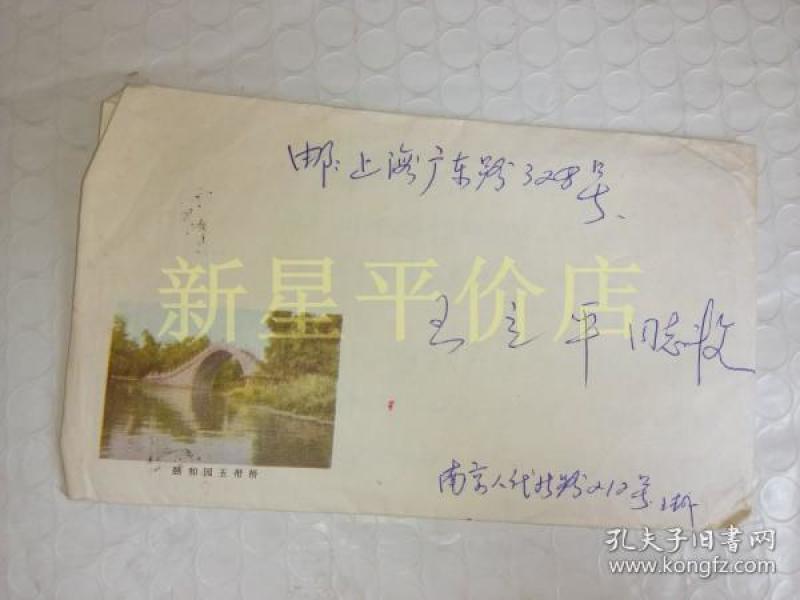 邮:上海广东路328号、
新星平价店
王立平同志收
颐和园玉带桥
南京
212号
孔夫子旧书网
www.kongfz.com